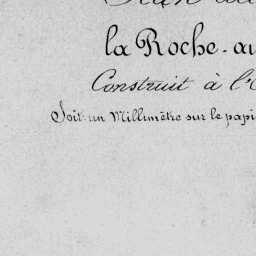 la Roche-au
Construit à l'
Soit un Millimètre sur le papi